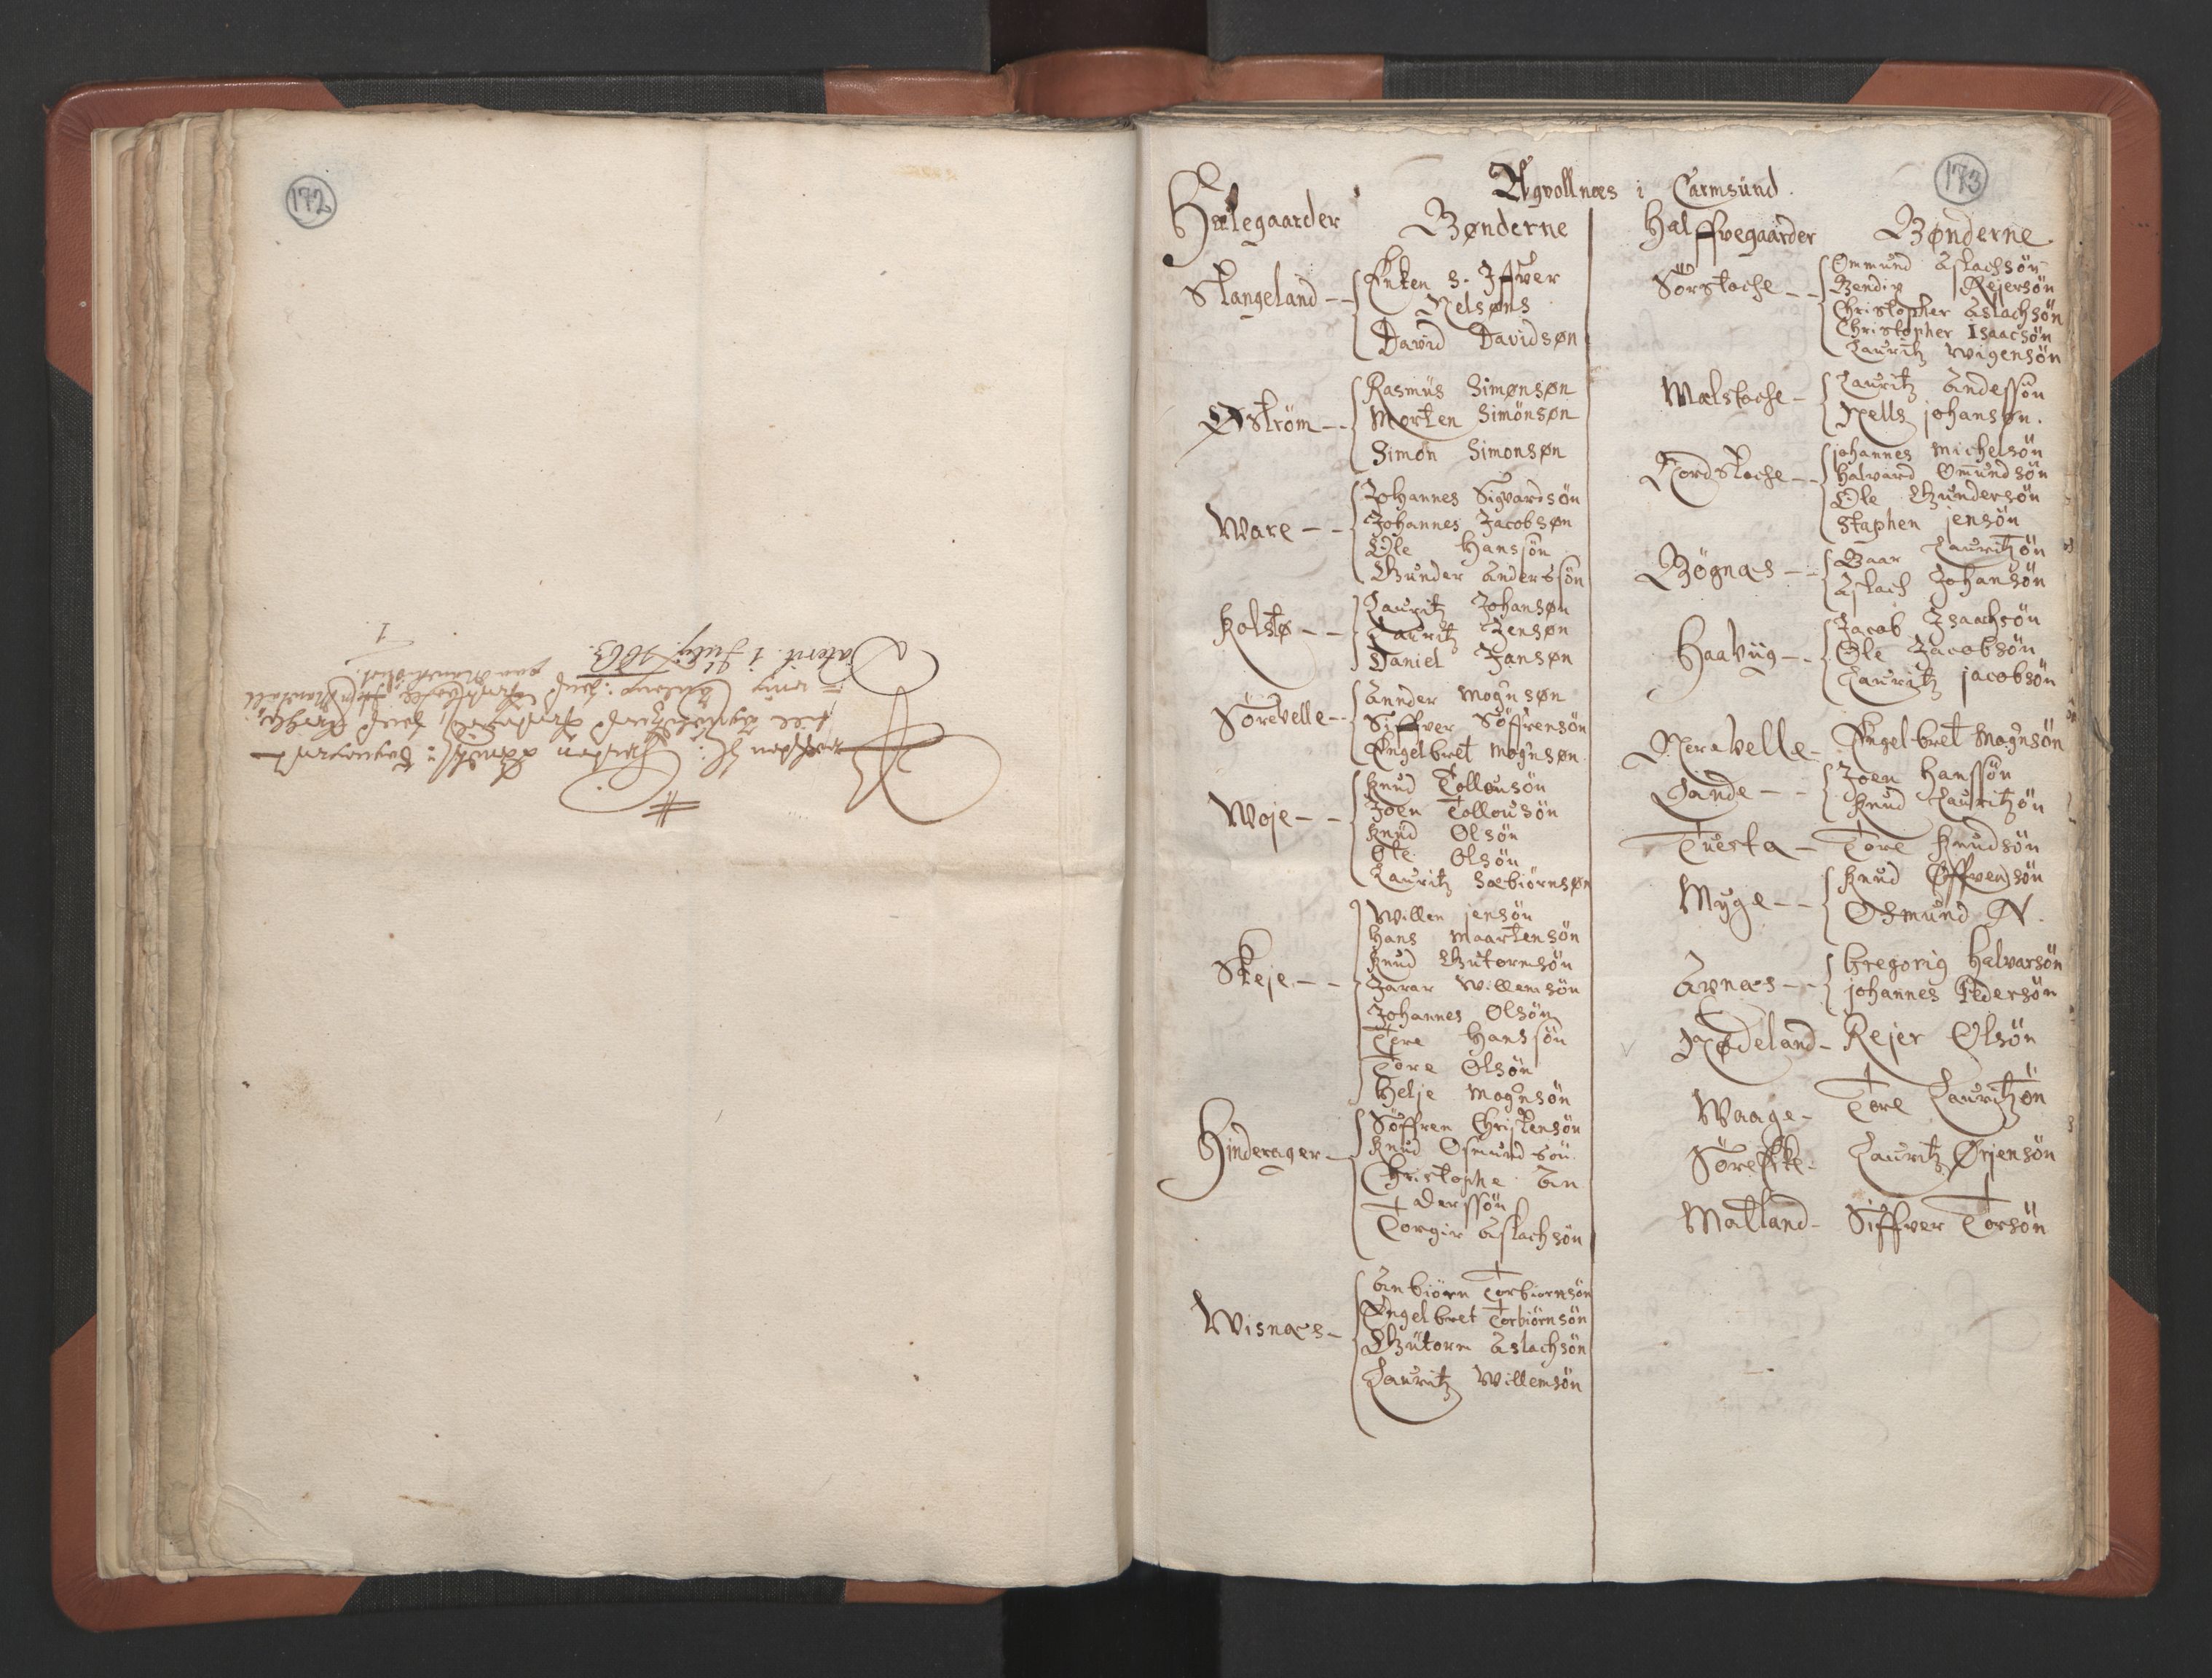 172
173
Agvollnæs i Carmsund.
Hælegaarder Bønderne
Stangeland -- Enken S. Iffver
Nelsøns
David Davidsøn
Øström -- Rasmus Simønsøn
Morten Simönsøn
Simon Simonsøn
Ware -- Johannes Sigvardsön
Johannes Jacobsøn
Ole Hanssön
Gunder Anderssön
Kolstø -- Lauritz Johansøn
Lauritz Jensøn
Daniel Jansøn
Sörevelle -- Annder Mognsøn
Siffver Söffrensön
Engelbret Mognsøn
Woje -- Knud Tollousön
Joen Tollousön
Knud Olsön
Ole Olsön
Lauritz Sæbiörnsøn
Skeje -- Willem jensön
Hans Maartensön
Knud Gutormsön
Jarar Willemsön
Johannes Olsön
Tore Hanssön
Tore Olsön
Helje Mognsön
Hinderager - Söffren Christensön
Knud Osmundsön
Christophe An
derssön
Torgir Aslachsön
Wisnæs - Anbiörn Torbiornsön
Engelbret Torbiörnsön
Gutorm Aslachsön
Lauritz Willemsön
Halffvegaarder Bønderne.
Sörstocke -- Ommund Aslachsön
Bendix Rejersön
Christopher Aslachsön
Christopher Isaacsön
Lauritz Wigensön
Mælstocke - Lauritz Andessön
Nells johansøn.
Nordstocke -- johannes Michelsön
Halvard Omundsön
Ole Gundersön
Staphen jensön
Bögnæs -- Baar Lauritzön
Aslach Johansön
Haaviig -- Jacob Isaachsön
Ole Jacobsön
Lauritz jacobsön
Nerevelle - Engelbret Mognsön
Lande -- Joen Hanssön
Knud Lauritzön
Tuesta - Tore Knudsön
Myge -- Knud Øffvensön
Osmund N.
Avnæs -- Gregorig Halvarsön
johannes Pedersön
Nødeland - Rejer Olsön
Waage - Tore Lauritzön
Söreffke - Lauritz Ørjensön
Matland - Siffver Torsön
Daterit. 1 July 1663.